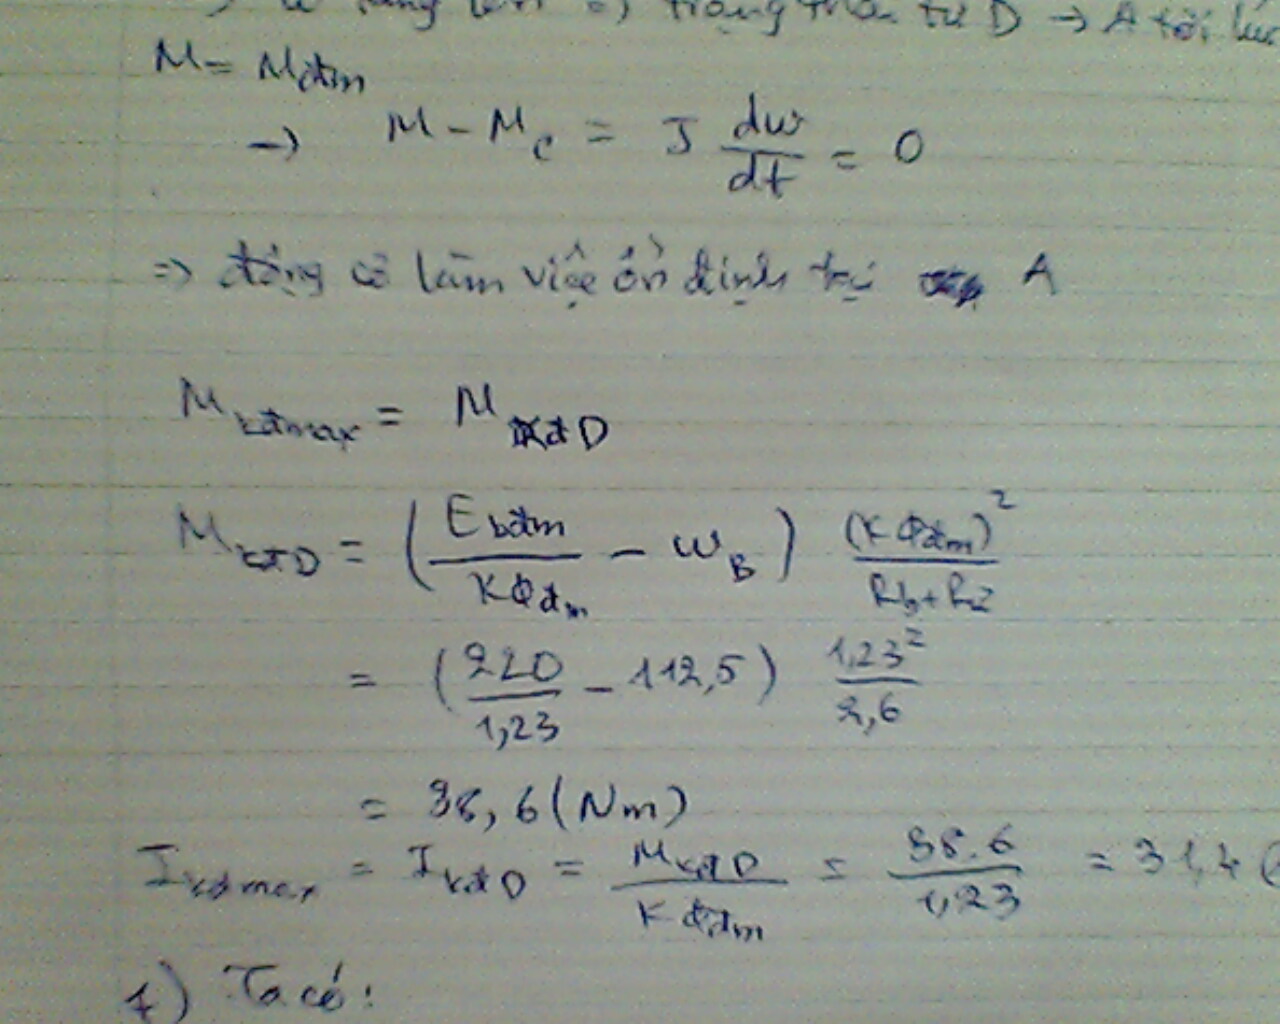 tăng lên => trạng thái từ D → A tới lúc
M = Mđm
→ M - Mc = J dω/dt = 0
=> động cơ làm việc ổn định tại A
Mkđmax = MkđD
MkđD = (Ebđm/KΦđm - ωB) (KΦđm)²/Rb+Rư
= (220/1,23 - 112,5) 1,23²/2,6
= 38,6 (Nm)
Ikđmax = IkđD = MkđD/KΦđm = 38.6/1,23 = 31,4 (
4) Ta có: